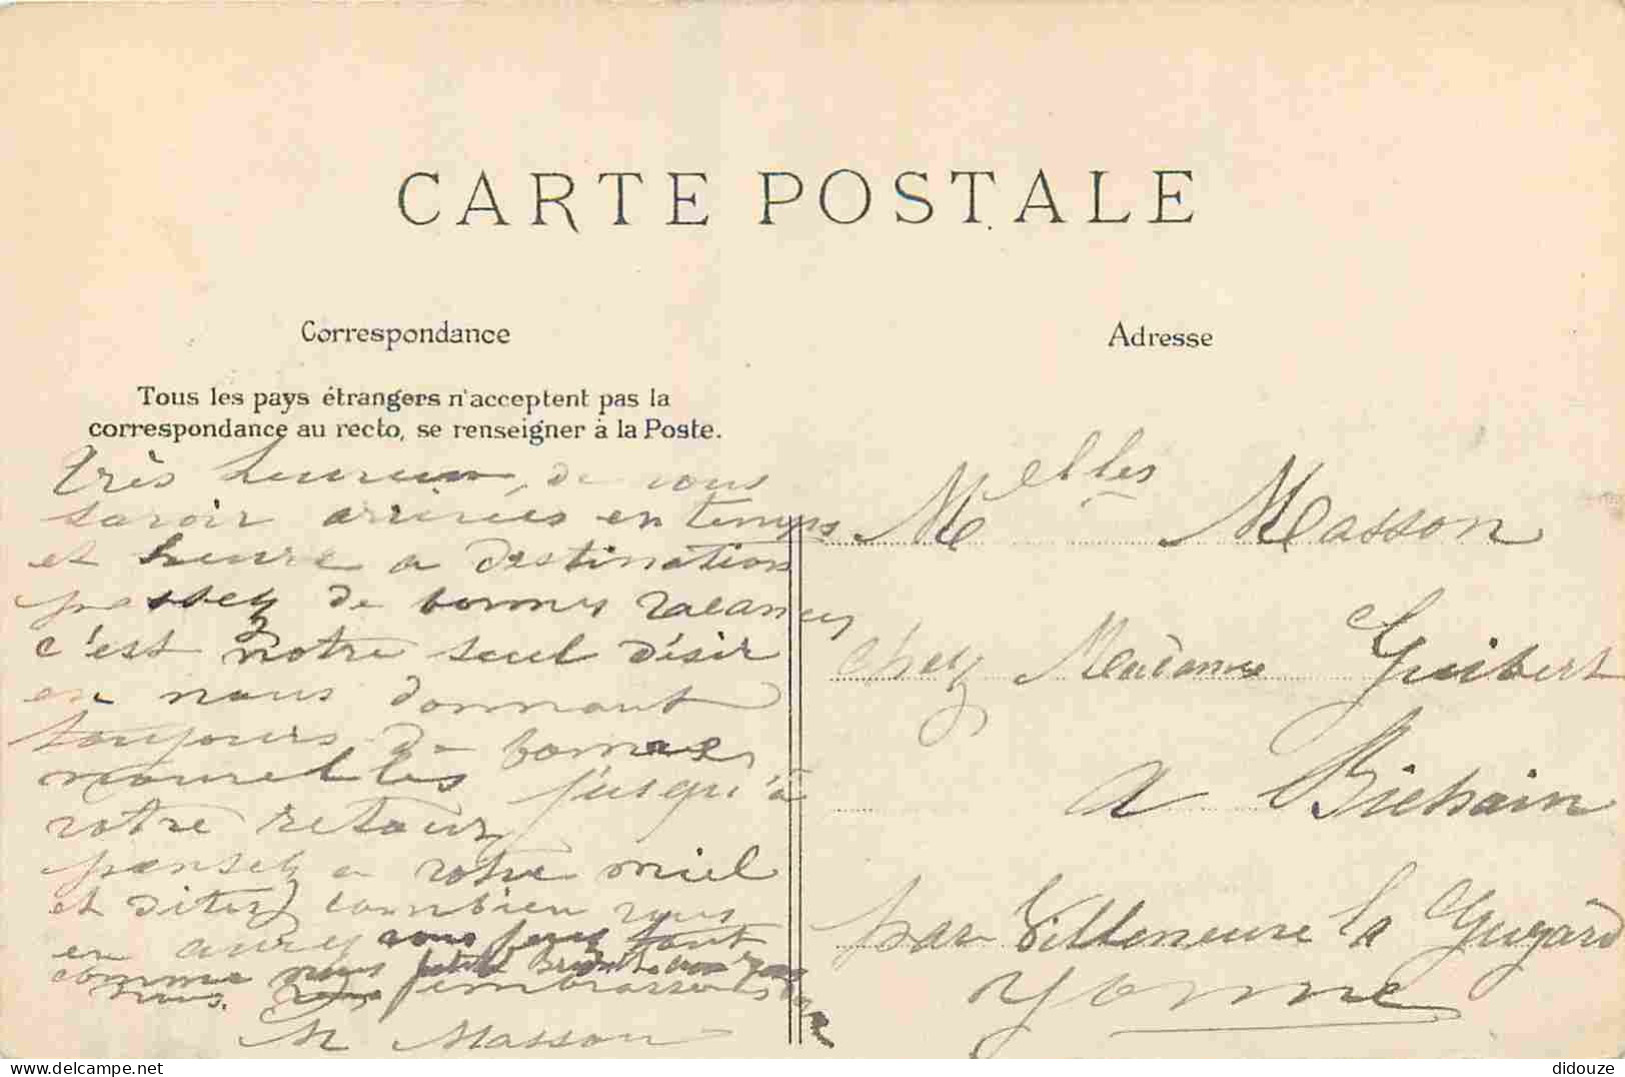 CARTE POSTALE
Correspondance
Tous les pays étrangers n'acceptent pas la
correspondance au recto, se renseigner à la Poste.
très heureux, de vous
savoir arrivées en temps
et heure a destination
passez de bonnes vacances
c'est notre seul désir
en nous donnant
toujours de bonnes
nouvelles jusqu'à
votre retour
pensez a votre miel
et dites combien vous
en aurez vous ferez tant
comme nous
nous. embrassons
M Masson
Adresse
Melles Masson
chez Madame Guibert
a Bichain
par Villeneuve la Guyard
Yonne
didouze